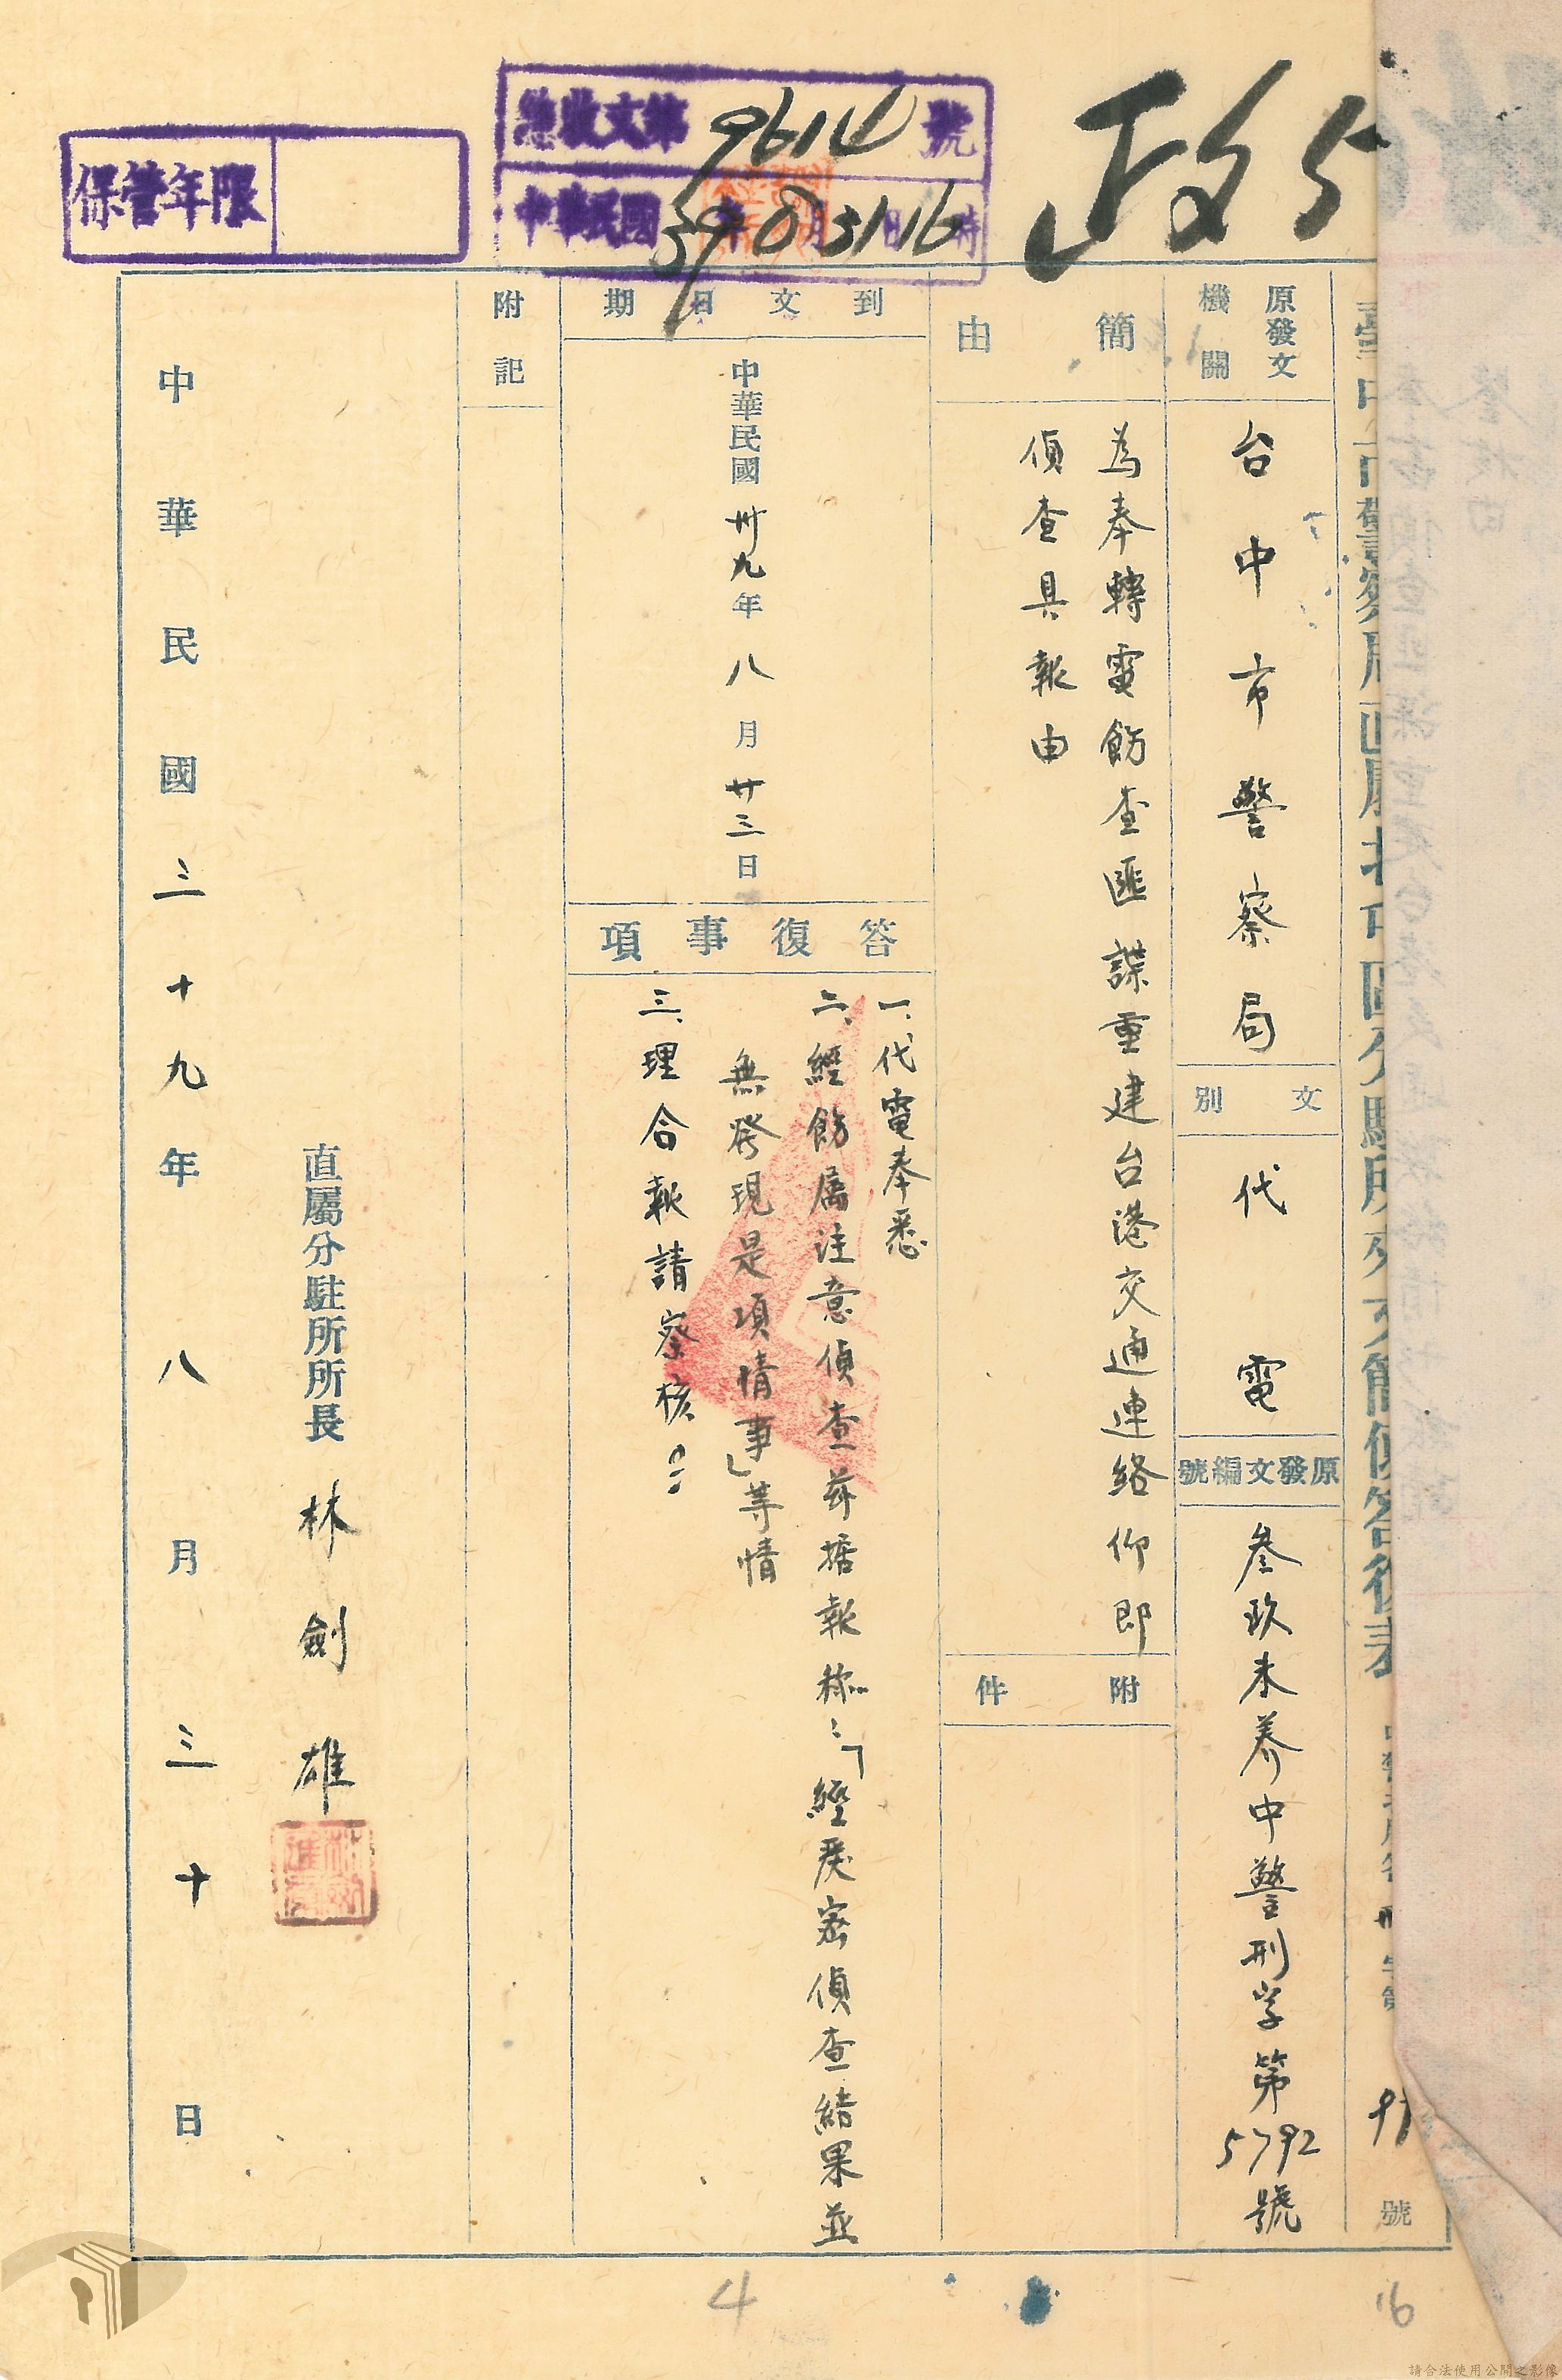 政5
總收文第9614號
中華民國39年8月31日16時
保管年限
號
原發文機關
台中市警察局
文別
代電
原發文編號
叁玖未養中警刑字第5792號
簡由
為奉轉電飭查匪諜重建台港交通連絡仰即
偵查具報由
附件
到文日期
中華民國卅九年八月廿三日
答復事項
一、代電奉悉
二、經飭屬注意偵查茲据報称:「經嚴密偵查結果並
無發現是項情事」等情
三、理合報請察核
附記
直屬分駐所所長 林劍雄
中華民國三十九年八月三十日
4
16
請合法使用公開之影像